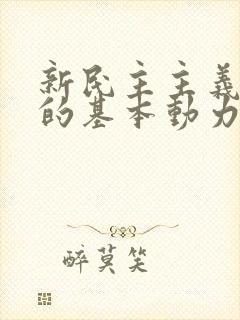 新民主主義
的基本動力
醉莫笑